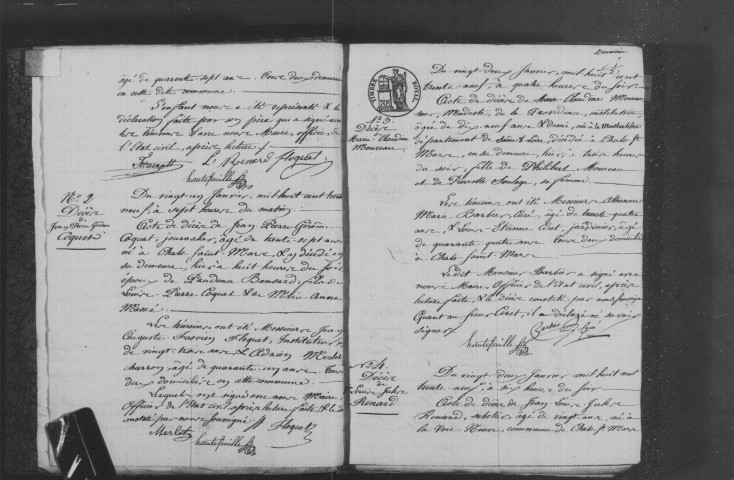 âgé de quarante sept ans. tous deux domiciliés
en cette dite commune.
L'enfant nous a été représenté & la
déclaration faite par son père qui a signé avec
les témoins & avec nous Maire, officier de
l'Etat civil, après lecture.
L. Renard Floquet
hautefeuille
N° 2
Décès
de
Jean Pierre Jérôme
Coquet
Du vingt un Janvier, mil huit cent trente
neuf, à sept heures du matin
Acte de décès de Jean Pierre Jérôme
Coquet, journalier, âgé de trente sept ans
né à Chalo Saint Marc, & y décédé en
sa demeure, hier à huit heures du soir
époux de Prudence Bansard, fils de
Louis Pierre Coquet & de Marie Anne
Massé
Les témoins ont été Messieurs Jean
Auguste Floquet, Instituteur âgé
de vingt trois ans & Merlet
charron, âgé de quarante un ans. tous
deux domiciliés en cette commune.
Lesquels ont signé avec nous Maire,
Officier de l'Etat civil, après lecture faite & le décès
constaté par nous soussigné
Merlet Floquet
hautefeuille
Deuxième
TIMBRE ROYAL
N° 3
Décès
Marie Claudine
Moureau
Du vingt deux Janvier, mil huit cent
trente neuf, à quatre heures du soir
Acte de décès de Marie Claudine Moureau
sœur de la Providence, institutrice
âgée de dix neuf ans & demi, née à
département de Saône & Loire, décédée à Chalo St
Marc, en sa demeure hier, à trois heures
du soir, fille de Philibert Moureau
et de Pierrette Soulage, sa femme
Les témoins ont été Messieurs Athanase
Marie Barbier, curé, âgé de trente quatre
ans, & Louis Etienne Ciret, jardinier, âgé
de quarante quatre ans tous deux domiciliés
à Chalo Saint Marc
Ledit Monsieur Barbier a signé avec
nous Maire, Officier de l'état civil, après
lecture faite, & le décès constaté par nous soussigné
Quant au sieur Ciret, il a déclaré ne savoir
signer
hautefeuille
N° 4
Décès
de
Louis Jules
Renard
Du vingt deux Janvier mil huit cent
trente neuf, à six heures du soir
Acte de décès de Jean Louis Jules
Renard, sabotier, âgé de vingt ans, né à
la Voie Neuve, commune de Chalo St Marc